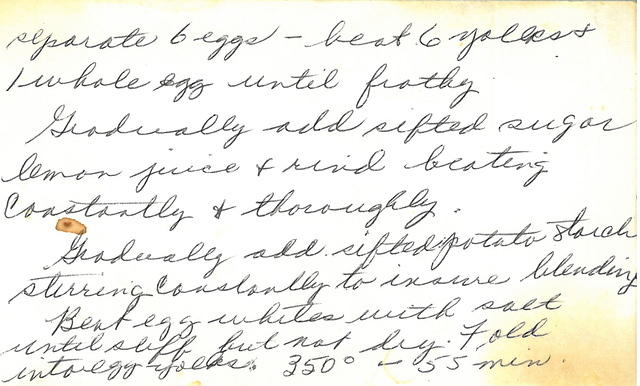 separate 6 eggs - beat 6 yolks &
1 whole egg until frothy.
Gradually add sifted sugar
lemon juice & rind beating
constantly & thoroughly.
Gradually add sifted potato starch
stirring constantly to insure blending
Beat egg whites with salt
until stiff but not dry. Fold
into egg yolks. 350° - 55 min.